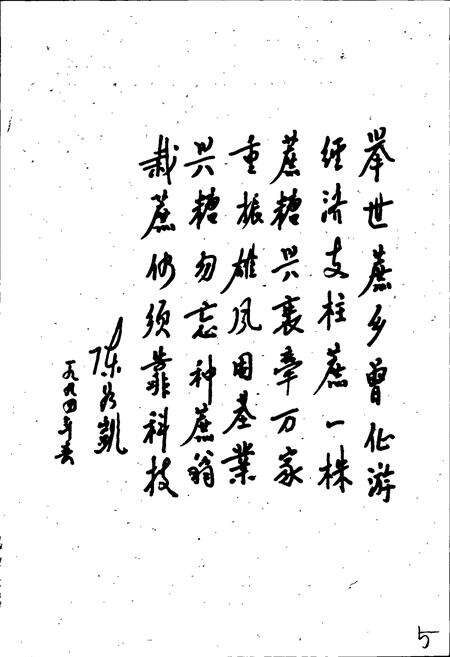 举世蔗乡曾仳游
经济支柱蔗一株
蔗糖兴衰牵万家
重振雄风固基业
兴糖勿忘种蔗翁
栽蔗仍须靠科技
陈 凯
一九九四年春
5